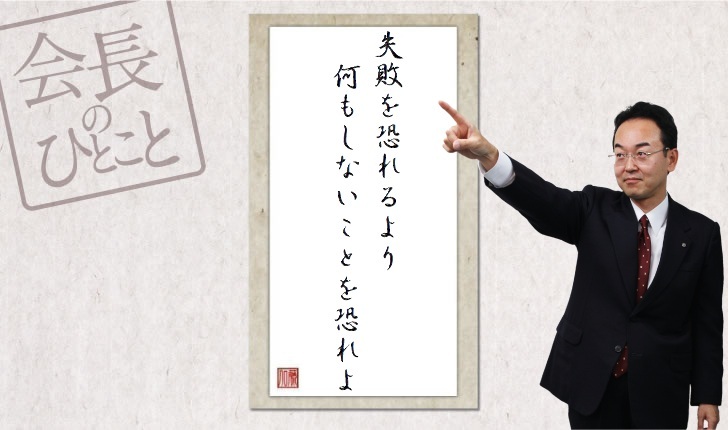 会長
の
ひとこと
失敗を恐れるより
何もしないことを恐れよ